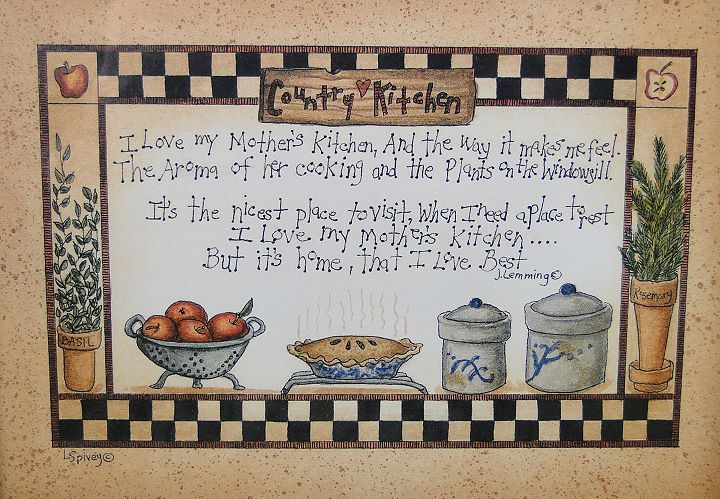 Country Kitchen
I Love my Mother's Kitchen, And the way it makes me feel.
The Aroma of her cooking and the Plants on the Windowsill.
It's the nicest place to visit, When I need a place to rest
I Love my Mother's Kitchen....
But it's home, that I Love Best
J. Lemming©
BASIL
Rosemary
L Spivey©